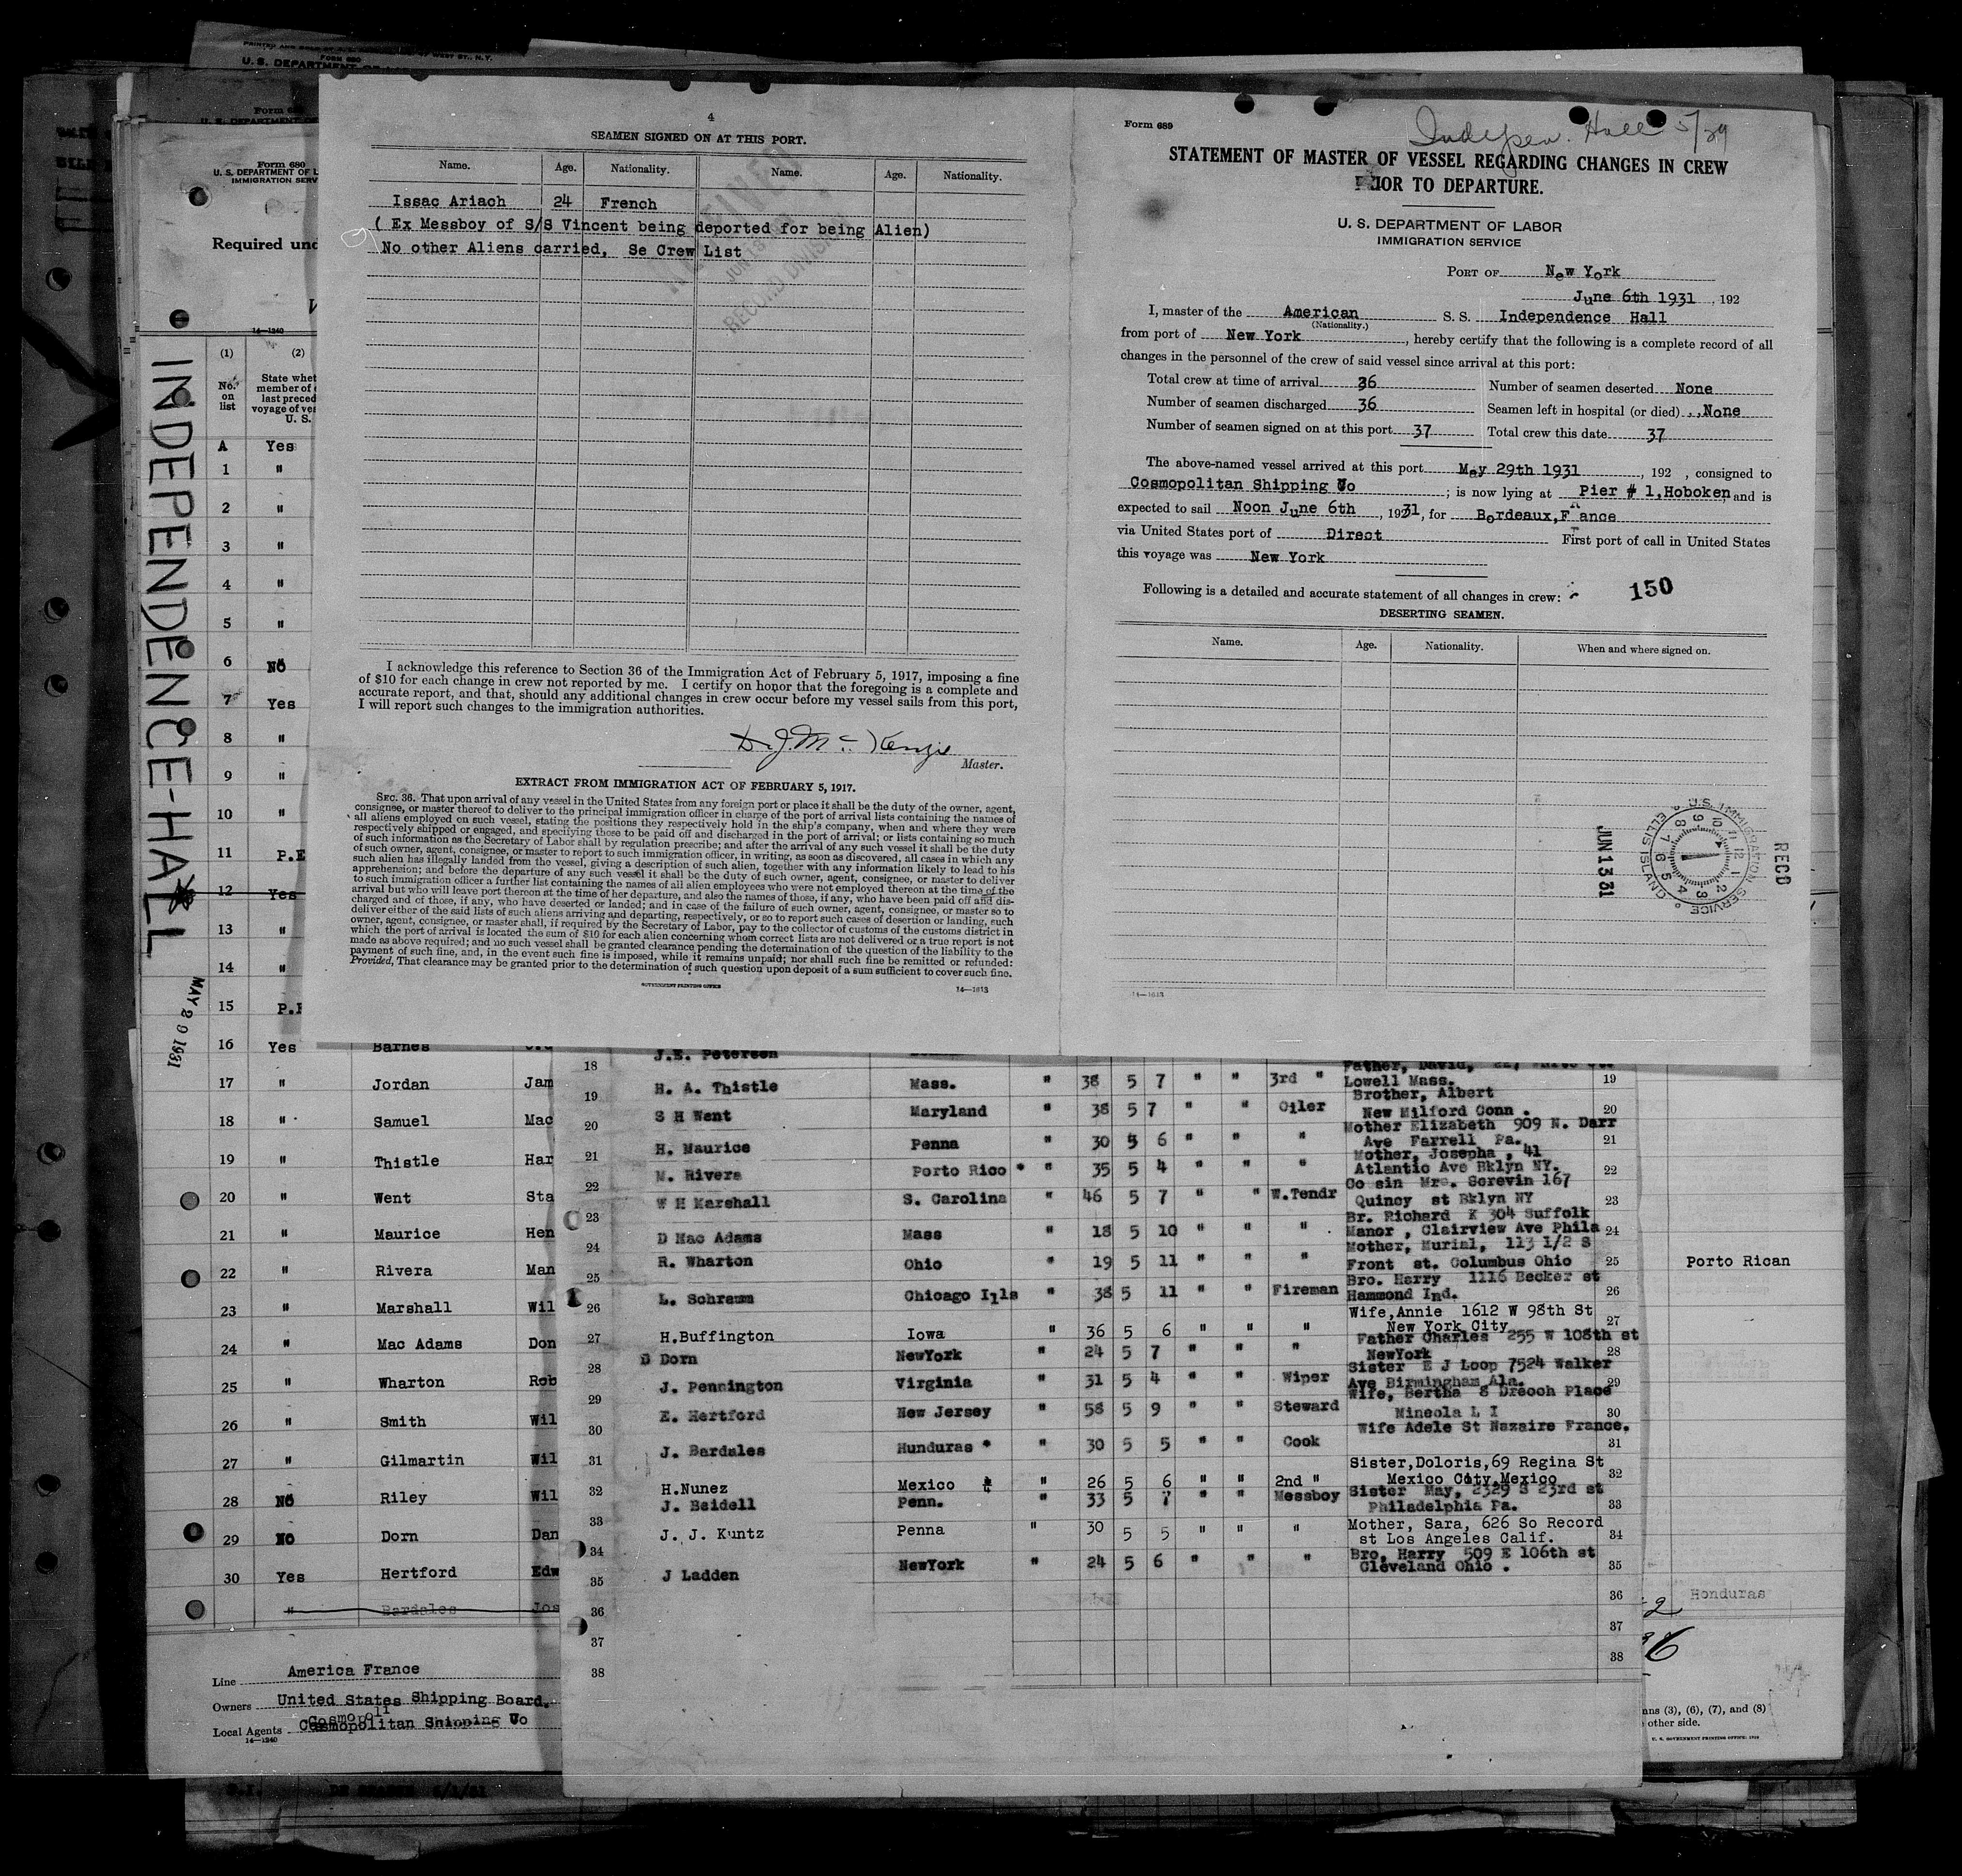 4
SEAMEN SIGNED ON AT THIS PORT.
Name. Age. Nationality. Name. Age. Nationality.
Issac Ariach 24 French
( Ex Messboy of S/S Vincent being deported for being Alien)
No other Aliens carried, Se Crew List
RECORD DIVISION
I acknowledge this reference to Section 36 of the Immigration Act of February 5, 1917, imposing a fine
of $10 for each change in crew not reported by me. I certify on honor that the foregoing is a complete and
accurate report, and that, should any additional changes in crew occur before my vessel sails from this port,
I will report such changes to the immigration authorities.
D. J. Mc Kenzie
Master.
EXTRACT FROM IMMIGRATION ACT OF FEBRUARY 5, 1917.
SEC. 36. That upon arrival of any vessel in the United States from any foreign port or place it shall be the duty of the owner, agent,
consignee, or master thereof to deliver to the principal immigration officer in charge of the port of arrival lists containing the names of
all aliens employed on such vessel, stating the positions they respectively hold in the ship's company, when and where they were
respectively shipped or engaged, and specifying those to be paid off and discharged in the port of arrival; or lists containing so much
of such information as the Secretary of Labor shall by regulation prescribe; and after the arrival of any such vessel it shall be the duty
of such owner, agent, consignee, or master to report to such immigration officer, in writing, as soon as discovered, all cases in which any
such alien has illegally landed from the vessel, giving a description of such alien, together with any information likely to lead to his
apprehension; and before the departure of any such vessel it shall be the duty of such owner, agent, consignee, or master to deliver
to such immigration officer a further list containing the names of all alien employees who were not employed thereon at the time of the
arrival but who will leave port thereon at the time of her departure, and also the names of those, if any, who have been paid off and dis-
charged and of those, if any, who have deserted or landed; and in case of the failure of such owner, agent, consignee, or master so to
deliver either of the said lists of such aliens arriving and departing, respectively, or so to report such cases of desertion or landing, such
owner, agent, consignee, or master shall, if required by the Secretary of Labor, pay to the collector of customs of the customs district in
which the port of arrival is located the sum of $10 for each alien concerning whom correct lists are not delivered or a true report is not
made as above required; and no such vessel shall be granted clearance pending the determination of the question of the liability to the
payment of such fine, and, in the event such fine is imposed, while it remains unpaid; nor shall such fine be remitted or refunded:
Provided, That clearance may be granted prior to the determination of such question upon deposit of a sum sufficient to cover such fine.
GOVERNMENT PRINTING OFFICE
14—1613
Form 689
Indepen. Hall 5/29
STATEMENT OF MASTER OF VESSEL REGARDING CHANGES IN CREW
PRIOR TO DEPARTURE.
U. S. DEPARTMENT OF LABOR
IMMIGRATION SERVICE
PORT OF New York
June 6th 1931 , 192
I, master of the American S. S. Independence Hall
(Nationality.)
from port of New York , hereby certify that the following is a complete record of all
changes in the personnel of the crew of said vessel since arrival at this port:
Total crew at time of arrival 36 Number of seamen deserted None
Number of seamen discharged 36 Seamen left in hospital (or died) None
Number of seamen signed on at this port 37 Total crew this date 37
The above-named vessel arrived at this port May 29th 1931 , 192 , consigned to
Cosmopolitan Shipping Co ; is now lying at Pier # 1, Hoboken and is
expected to sail Noon June 6th , 1931, for Bordeaux, France
via United States port of Direct First port of call in United States
this voyage was New York
Following is a detailed and accurate statement of all changes in crew:
150
DESERTING SEAMEN.
Name. Age. Nationality. When and where signed on.
U.S. IMMIGRATION SERVICE
ELLIS ISLAND
JUN 13 31
RECD
14—1613
Form 680
U. S. DEPARTMENT OF L
IMMIGRATION SERV
Required und
14—1240
INDEPENDENCE-HALL
MAY 29 1931
(1) (2)
No. on list
State whet
member of
last preced
voyage of ves
U. S.
A Yes
1 "
2 "
3 "
4 "
5 "
6 NO
7 Yes
8 "
9 "
10 "
11 P.E
12 Yes
13 "
14 "
15
16 Yes Barnes
17 " Jordan Jam
18 " Samuel Mac
19 " Thistle Har
20 " Went Sta
21 " Maurice Hen
22 " Rivera Man
23 " Marshall Wil
24 " Mac Adams Don
25 " Wharton Rob
26 " Smith Wil
27 " Gilmartin Wil
28 NO Riley Wil
29 NO Dorn Dan
30 Yes Hertford Edw
" Bardales Jos
Line America France
Owners United States Shipping Board.
Local Agents Cosmopolitan Shipping Co
14—1240
18 J.E. Peterson
19 H. A. Thistle Mass. " 38 5 7 " " 3rd " Lowell Mass. 19
20 S H Went Maryland " 38 5 7 " " Oiler Brother, Albert New Milford Conn . 20
21 H. Maurice Penna " 30 5 6 " " " Mother Elizabeth 909 N. Darr Ave Farrell Pa. 21
22 M. Rivera Porto Rico * " 35 5 4 " " " Mother, Josepha , 41 Atlantic Ave Bklyn NY. 22
23 W H Marshall S. Carolina " 46 5 7 " " W.Tendr Cousin Mrs. Screvin 167 Quincy st Bklyn NY 23
24 D Mac Adams Mass " 18 5 10 " " " Br. Richard K 304 Suffolk Manor , Clairview Ave Phila 24
25 R. Wharton Ohio " 19 5 11 " " " Mother, Murial, 113 1/2 S Front st. Columbus Ohio 25
26 L. Schramm Chicago Ills " 38 5 11 " " Fireman Bro. Harry 1116 Becker st Hammond Ind. 26
27 H.Buffington Iowa " 36 5 6 " " " Wife,Annie 1612 W 98th St New York City 27
28 D Dorn NewYork " 24 5 7 " " " Father Charles 255 W 108th st NewYork 28
29 J. Pennington Virginia " 31 5 4 " " Wiper Sister E J Loop 7524 Walker Ave Birmingham Ala. 29
30 E. Hertford New Jersey " 58 5 9 " " Steward Wife, Bertha 8 Dreoch Place Mineola L I 30
31 J. Bardales Hunduras * " 30 5 5 " " Cook Wife Adele St Nazaire France. 31
32 H.Nunez Mexico " 26 5 6 " " 2nd " Sister,Doloris,69 Regina St Mexico City,Mexico 32
33 J. Beidell Penn. " 33 5 7 " " Messboy Sister May, 2329 S 23rd st Philadelphia Pa. 33
34 J. J. Kuntz Penna " 30 5 5 " " " Mother, Sara, 626 So Record st Los Angeles Calif. 34
35 J Ladden NewYork " 24 5 6 " " " Bro, Harry 509 E 106th st Cleveland Ohio . 35
36 36
37 37
38 38
Porto Rican
Honduras
ans (3), (6), (7), and (8)
other side.
U. S. GOVERNMENT PRINTING OFFICE